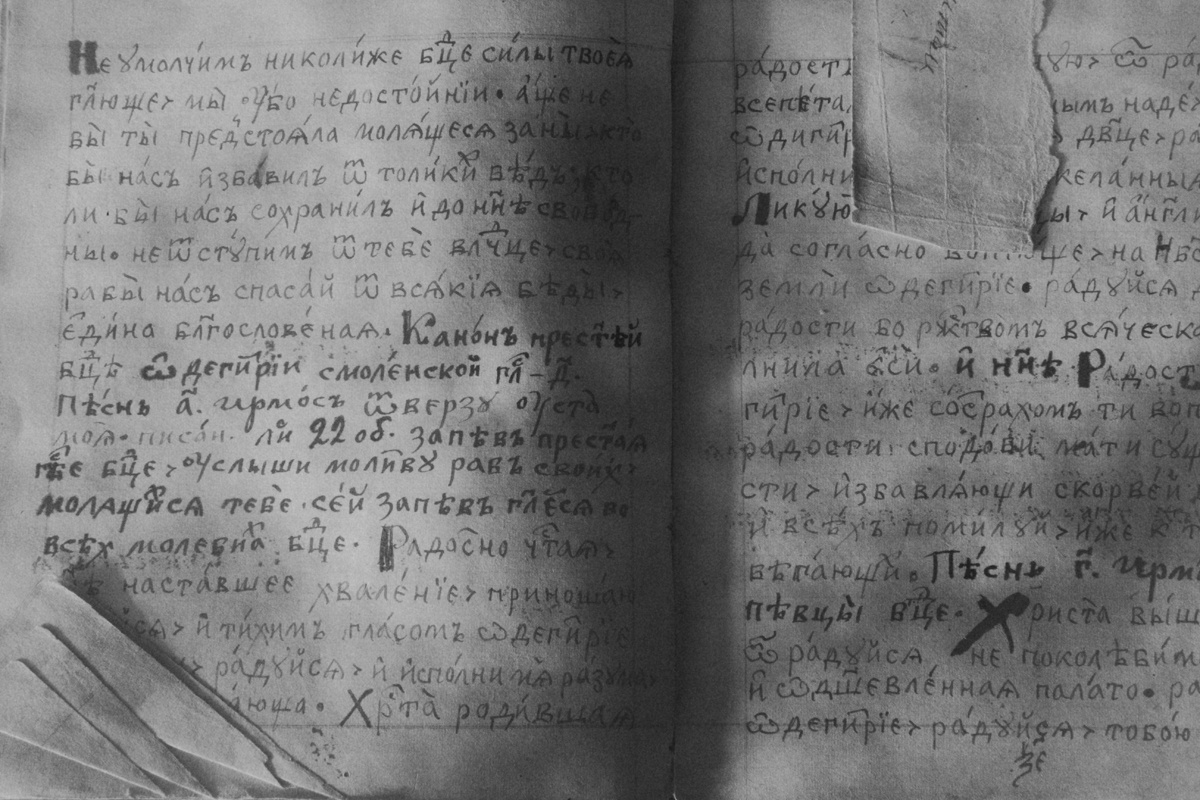 Не ꙋмолчи́мъ николи́же бц҃де си́лы твоеѧ̀
гл҃юще, мы̀ оу҆́бо недосто́йнїи. а҆́ще не
бы̀ ты̀ предстоѧ́ла молѧ́щесѧ за́ ны̀, кто̀
бы̀ на́съ и҆зба́вилъ ѿ толи́ки́хъ бѣ́дъ, кто
ли бы̀ на́съ сохрани́лъ и҆ до нн҃ѣ свобо́д
ны. не ѿстꙋ́пимъ ѿ тебѐ влчⷣце, своѧ̀
рабы̀ на́съ спаса́й ѿ всѧ́кїѧ бѣды̀,
є҆ди́на бл҃гослове́наѧ. Кано́нъ прест҃ѣ́й
бцⷣѣ ѡ҆деги́трїи смоле́нской гл҃-д҃.
Пѣ́снь а҃. ирмо́съ ѿве́рзꙋ оу҆ста̀
моѧ̀. писан. ли 22 об. запѣвъ прест҃аѧ
гж҃е бцⷣе, оу҆слыши моли́твꙋ рабъ свои́хъ,
молѧщи́хсѧ тебѐ. се́й запѣвъ гл҃етсѧ во
всѣ́хъ моле́бнахъ бцⷣе. Ра́достно чⷭ҇таѧ,
наста́вшее хвале́нїе, приноша́ю
сѧ, и҆ ти́химъ гла́сомъ ѡ҆деги́трїе
ра́дꙋйсѧ, и҆ и҆спо́лни мѧ̀ ра́зꙋма,
а́юща. Хрⷭ҇та̀ роди́вшаѧ
ра́дость ꙋю, ѿ ра́д
всепѣ́та ымъ наде́ж
ѡ҆деги́тр , дв҃це, ра
и҆спо́лни жела́нныѧ
Ликꙋ́ю ы, и҆ а҆́нг҃ли
да̀ согла́сно вопїю́ще, на нб҃с
земли̂ ѡ҆деги́трїе. ра́дꙋйсѧ
ра́дости бо ржⷭ҇тво́мъ всѧ́ческ
лни́ла є҆сѝ. и҆ нн҃ѣ Ра́дост
ги́трїе, и҆́же со стра́хомъ ти воп
ра́дости, сподо́би
сти, и҆збавлѧ́ющи скорбе́й
и҆ всѣ́хъ поми́лꙋй, и҆́же к т
бѣга́ющи́. Пѣ́снь г҃. ирм
пѣвцы̀ бцⷣе. Христа̀ вы́ш
ѿ ра́дꙋйсѧ не поколѣби́м
и҆ ѡ҆дш҃евле́ннаѧ пала́то. ра
ѡ҆деги́трїе, ра́дꙋйсѧ, тобо́ю
зе